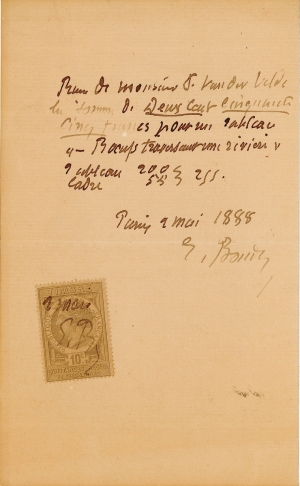 Reçu de monsieur J. Van der Velde
la somme de Deux Cent Cinquante
Cinq francs pour un tableau
« Boeufs traversant une rivière »
Tableau 200
Cadre 55 } 255.
Paris 2 mai 1888
E. Boudin
2 mai
E. B
10